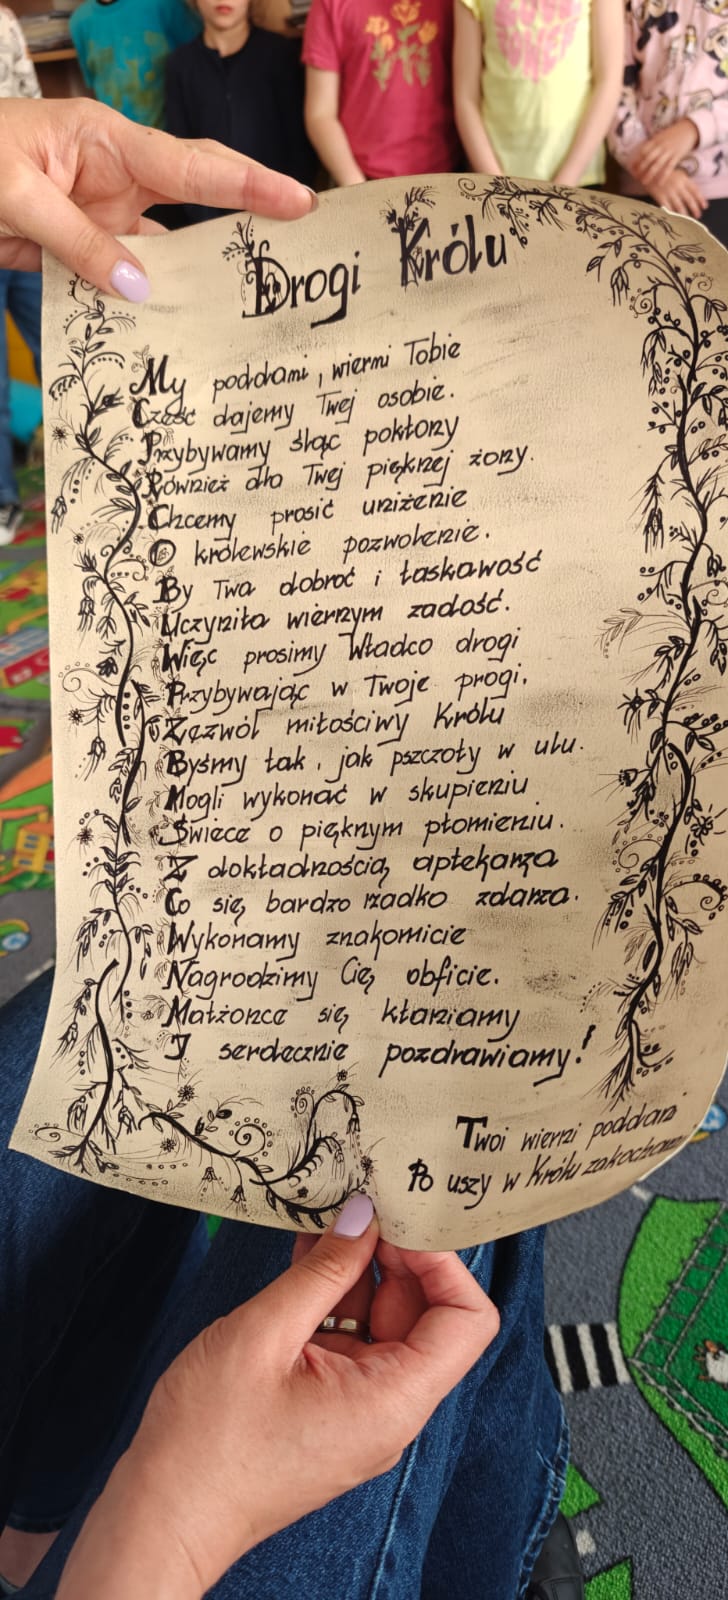 Drogi Królu
My poddani, wierni Tobie
Cześć dajemy Twej osobie.
Przybywamy śląc pokłony
Również dla Twej pięknej żony.
Chcemy prosić uniżenie
O królewskie pozwolenie.
By Twa dobroć i łaskawość
Uczyniła wiernym zadość.
Więc prosimy Władco drogi
Przybywając w Twoje progi,
Zezwól miłościwy Królu
Byśmy tak, jak pszczoły w ulu.
Mogli wykonać w skupieniu
Świece o pięknym płomieniu.
Z dokładnością aptekarza
Co się bardzo rzadko zdarza.
Wykonamy znakomicie
Nagrodzimy Cię obficie.
Małżonce się kłaniamy
I serdecznie pozdrawiamy!
Twoi wierni poddani
Po uszy w Królu zakochani